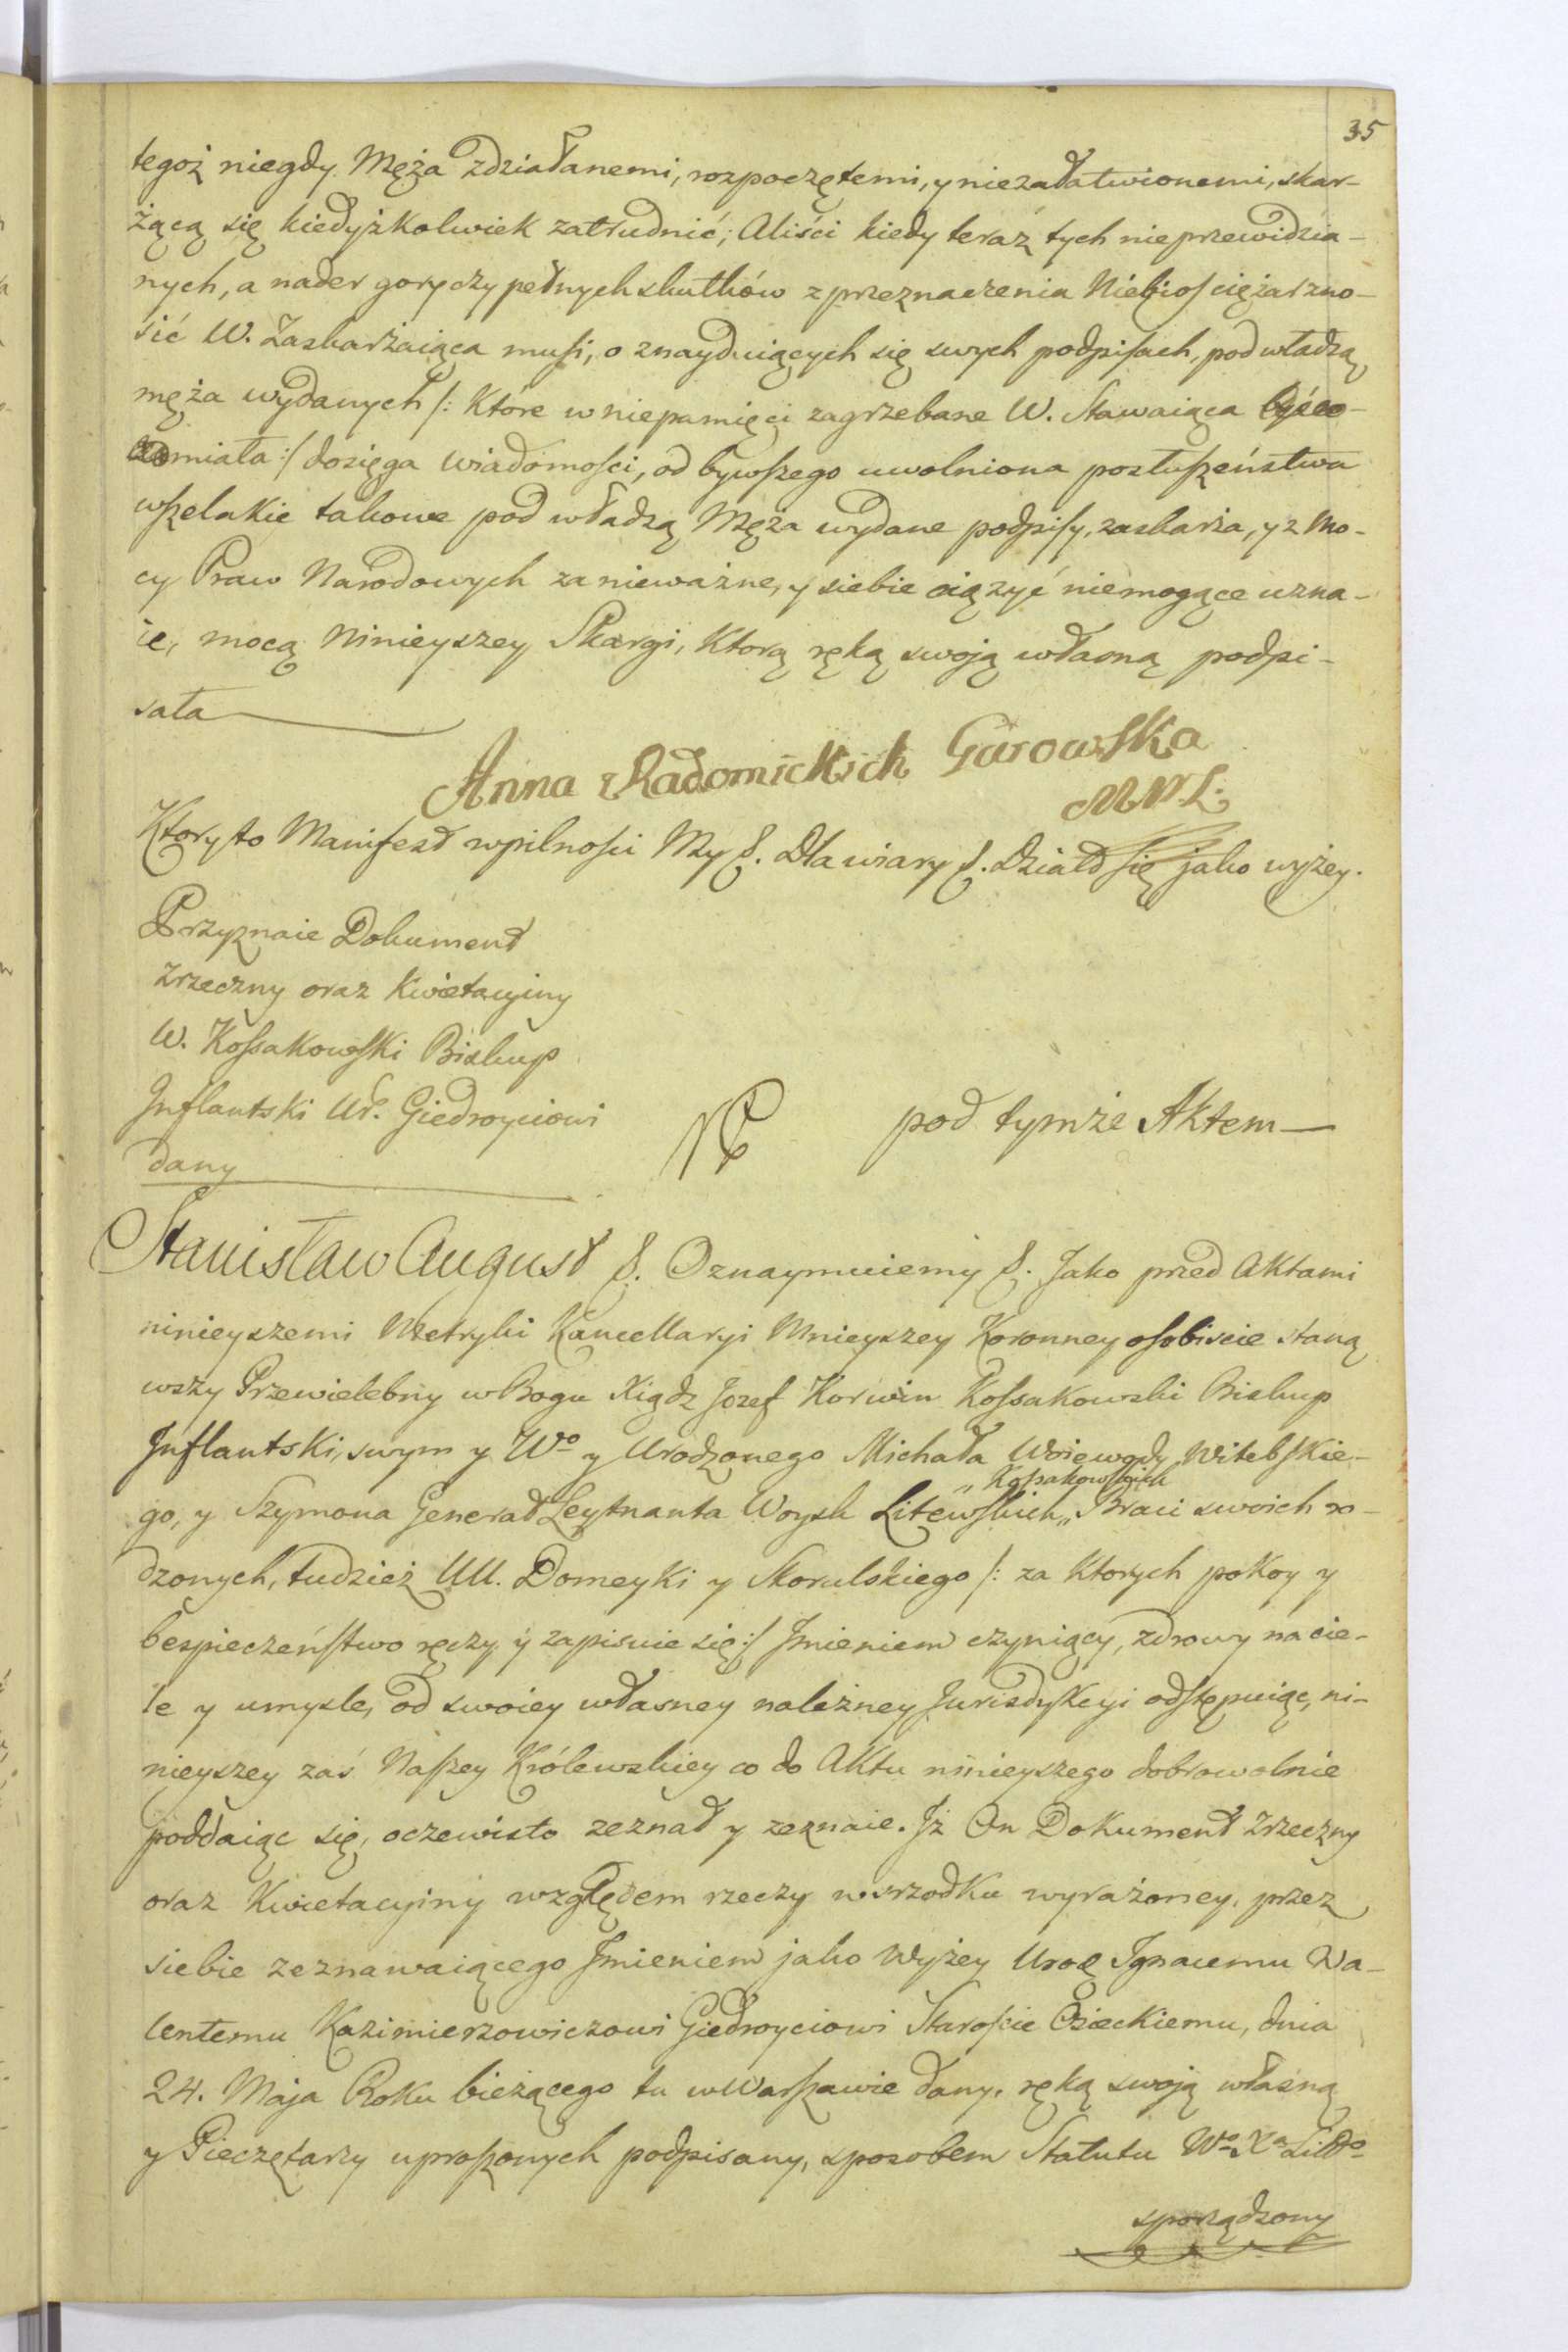 35
tegoż niegdy Męża zdziałanemi, rozpoczętemi, y niezałatwionemi, skar-
żącą się kiedyżkolwiek zatrudnić; Aliści kiedy teraz tych nieprzewidzia-
nych, a nader goryczy pełnych skutków z przeznaczenia Niebios ciężar zno-
sić W. Zaskarżaiąca musi, o znayduiących się swych podpisach, pod władzą
męża wydanych /: Które w niepamięci zagrzebane W. Stawaiąca być
miała :/ dosięga wiadomości, od bywszego uwolniona posłuszeństwa
wszelakie takowe pod władzą Męża wydane podpisy, zaskarża, y z Mo-
cy Praw Narodowych za nieważne, y siebie ciążyć niemogące uzna-
ie, mocą Ninieyszey Skargi, Ktorą ręką swoją własną podpi-
sała
Anna z Radomickich Gurowska
Ktory to Manifest w pilności My &. Dla wiary &. Działo się jako wyżey.
Przyznaie Dokument
Zrzeczny oraz Kwietacyiny
W. Kossakowski Biskup
Inflantski Ur. Giedroyciowi
dany
pod tymże Aktem
Stanisław August &. Oznaymuiemy &. Jako przed Aktami
ninieyszemi Metryki Kancellaryi Mnieyszey Koronney osobiscie staną
wszy Przewielebny w Bogu Xiądz Jozef Korwin Kossakowski Biskup
Inflantski, swym y Wo y Urodzonego Michała Woiewody Witebskie-
go, y Szymona Generał Leytnanta Woysk Litewskich „ Kossakowskich „ Braci swoich ro-
dzonych, tudzież UU. Domeyki y Skorulskiego /: za Ktorych pokoy y
bespieczeństwo ręczy y zapisuie się :/ Imieniem czyniący, zdrowy na cie-
le y umysle, od swoiey własney należney Jurisdykcyi odstępuiąc, ni-
nieyszey zaś Naszey Królewskiey co do Aktu ninieyszego dobrowolnie
poddaiąc się, oczewisto zeznał y zeznaie. Iż On Dokument Zrzeczny
oraz Kwietacyiny względem rzeczy w srzodku wyrażoney, przez
siebie zeznawaiącego Imieniem jako Wyżey Urodz Ignacemu Wa-
lentemu Kazimierzowiczowi Giedroyciowi Staroście Osieckiemu, dnia
24. Maja Roku bieżącego tu w Warszawie dany, ręką swoją własną
y Pieczętarzy uproszonych podpisany, sposobem Statutu Wo Xa Littgo
sporządzony